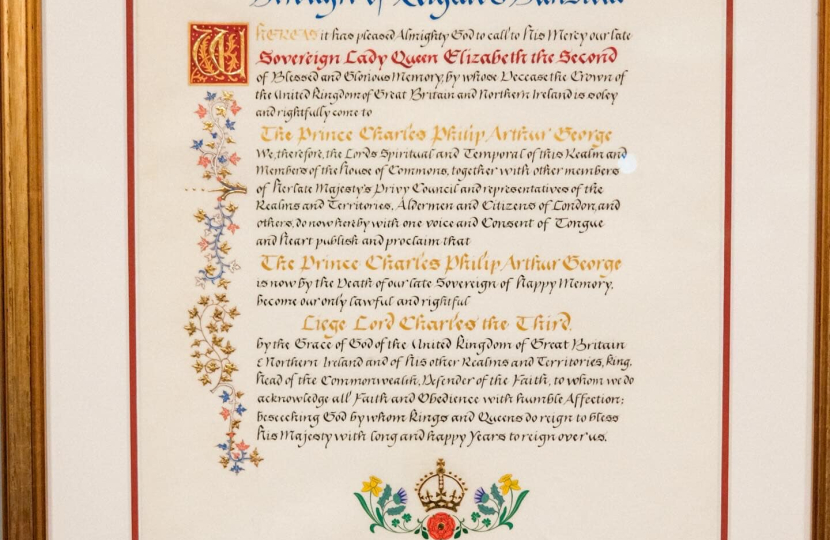 Borough of Reigate & Banstead
WHEREAS it has pleased Almighty God to call to his Mercy our late
Sovereign Lady Queen Elizabeth the Second
of Blessed and Glorious Memory, by whose Decease the Crown of
the United Kingdom of Great Britain and Northern Ireland is soley
and rightfully come to
The Prince Charles Philip Arthur George
We, therefore, the Lords Spiritual and Temporal of this Realm and
Members of the House of Commons, together with other members
of her late Majesty's Privy Council and representatives of the
Realms and Territories, Aldermen and Citizens of London, and
others, do now hereby with one voice and Consent of Tongue
and heart publish and proclaim that
The Prince Charles Philip Arthur George
is now by the Death of our late Sovereign of happy Memory,
become our only lawful and rightful
Liege Lord Charles the Third,
by the Grace of God of the United Kingdom of Great Britain
& Northern Ireland and of his other Realms and Territories, King,
head of the Commonwealth, Defender of the Faith, to whom we do
acknowledge all Faith and Obedience with humble Affection;
beseeching God by whom Kings and Queens do reign to bless
his Majesty with long and happy Years to reign over us.